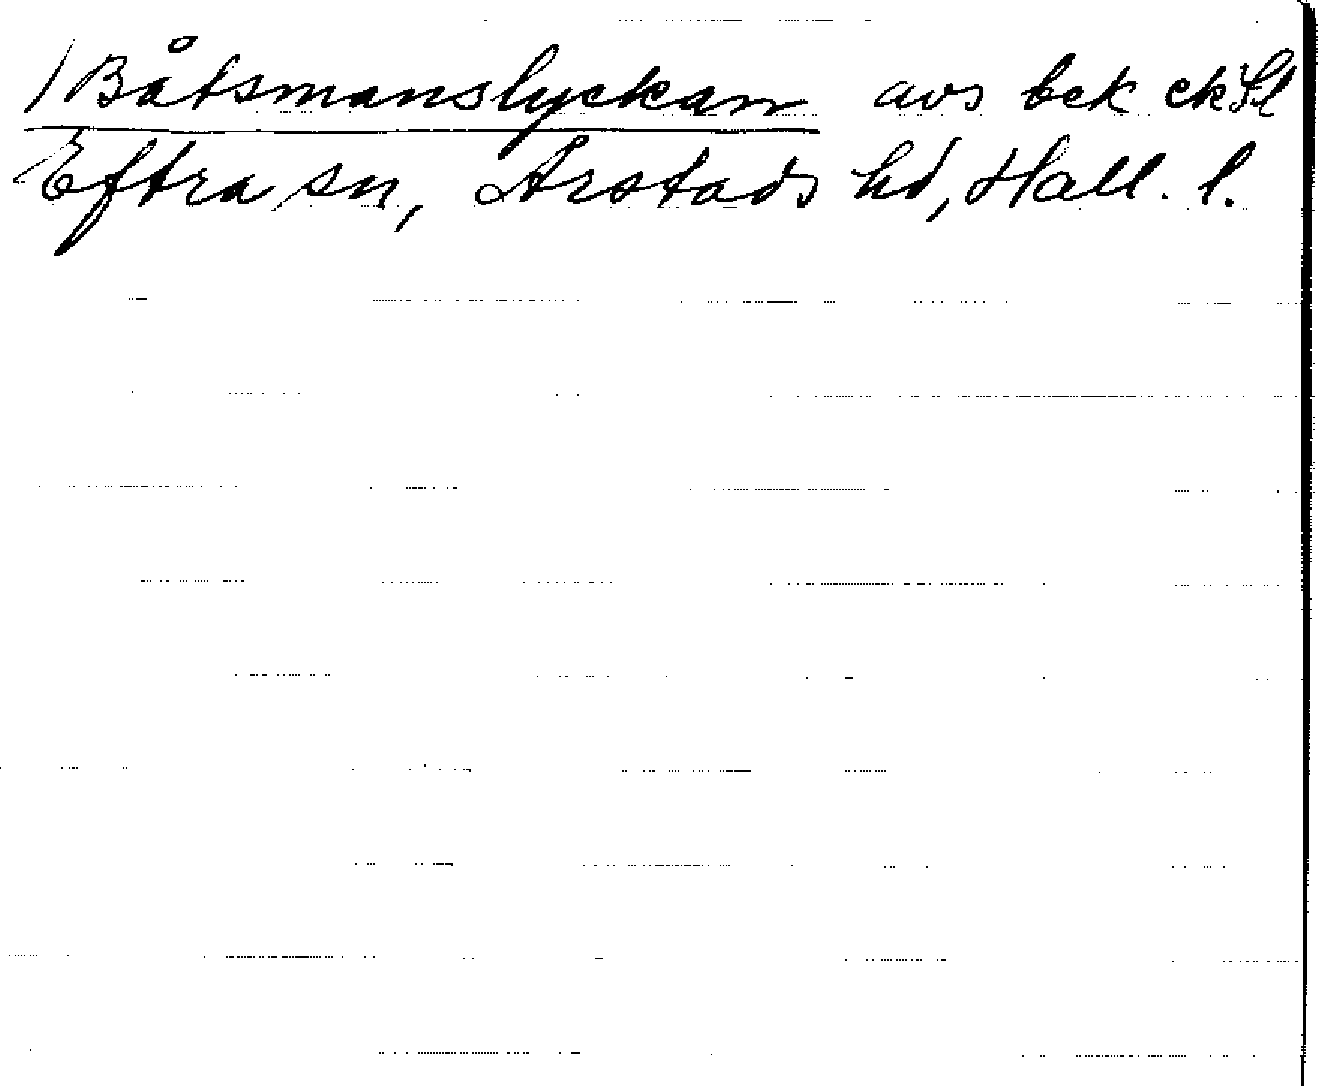 /Båtsmanslyckan avs bek
Eftra sn, Årstads hd, Hall. l.